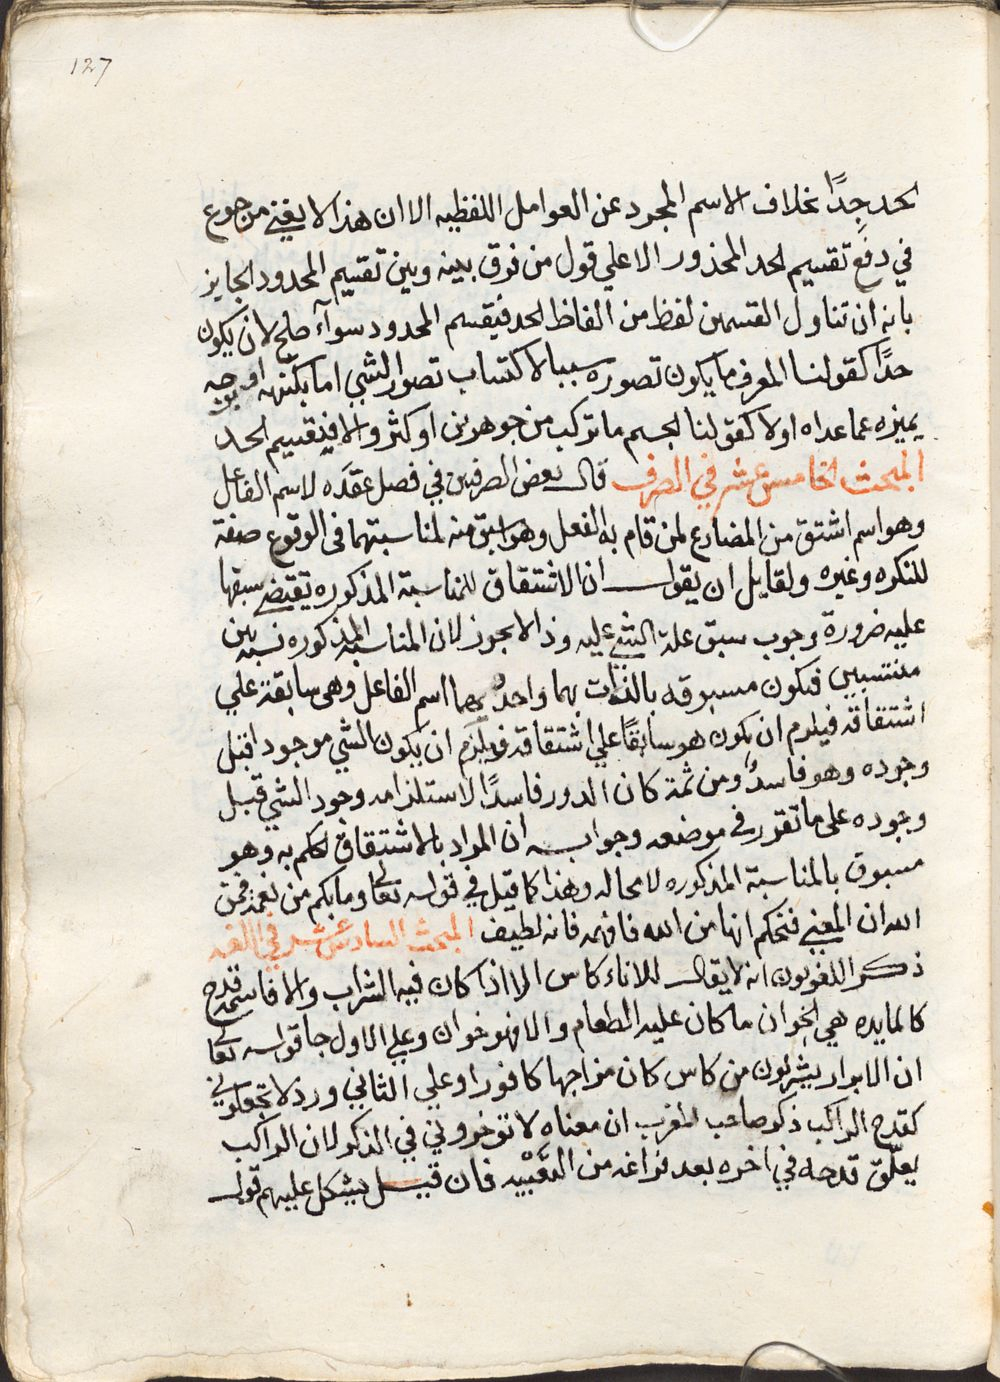 127
لحد جدًا بخلاف الاسم المجرد عن العوامل اللفظيه الا ان هذا لا يغني من جوع
في دفع تقسيم لحد المحذور الا علي قول من فرق بينه وبين تقسيم المحدود الجايز
بانه ان تناول القسمين لفظ من الفاظ لحد فيقسم المحدود سوآء صلح لان يكون
حدًا كقولنا المعرف ما يكون تصوره سببا لاكتساب تصور الشي اما بكنهه او بوجه
يميزه عما عداه اولا كقولنا لجسم ما تركب من جوهرين او اكثر والا فيقسم لحد
المبحث الخامس عشر في الصرف قال بعض الصرفين في فصل عقده لاسم الفاعل
وهو اسم اشتق من المضارع لمن قام به الفعل وهو اسبق منه لمناسبتهما في الوقوع صفة
للنكره وغيره ولقايل ان يقول ان الاشتقاق للمناسبة المذكوره يقتضي سبقها
عليه ضرورة وجوب سبق علة الشي عليه وذا لا يجوز لان المناسبة المذكوره نسبة بين
منتسبين فتكون مسبوقه بالذات بهما واحدهما اسم الفاعل وهي سابقة علي
اشتقاقه فيلزم ان يكون هو سابقًا علي اشتقاقه فيلزم ان يكون الشي موجودا قبل
وجوده وهو فاسدٌ ومن ثمة كان الدور فاسدًا لاستلزامه وجود الشي قبل
وجوده علي ما تقرر في موضعه وجوابه ان المراد بالاشتقاق لحكم به وهو
مسبوق بالمناسبة المذكوره لا محاله وهذا كما قيل في قوله تعالي وما بكم من نعمة فمن
الله ان المعني فنحكم انها من الله فافهمه فانه لطيف المبحث السادس عشر في اللغه
ذكر اللغويون انه لا يقال للاناء كاس الا اذا كان فيه الشراب والا فاسمه قدح
كالمايده هي لخوان ما كان عليه الطعام والا فهو خوان وعلي الاول جا قوله تعالي
ان الابرار يشربون من كاس كان مزاجها كافورا وعلي الثاني ورد لا تجعلوني
كقدح الراكب ذكر صاحب المغرب ان معناه لا تؤخروني في الذكر لان الراكب
يعلّق قدحه في اخره بعد فراغه من التعبيه فان قيل يشكل عليهم قوله